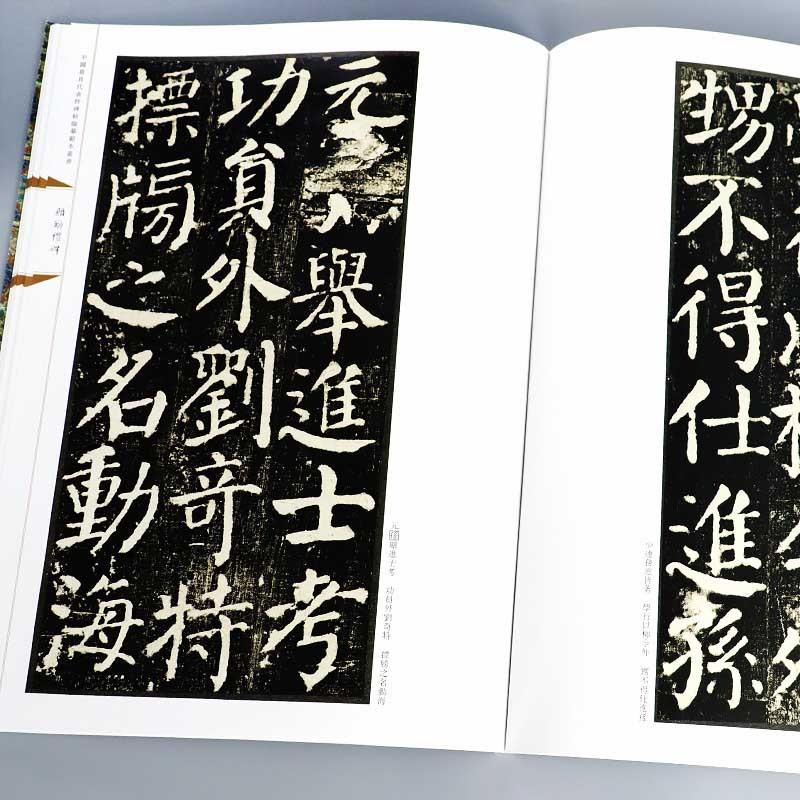 甥不得仕進孫
元舉進士考
功貟外劉竒特
摽牓之名動海
元舉進士考 功員外劉奇特 標牓之名動海
中國最具代表性碑帖臨摹範本叢書
顏勤禮碑